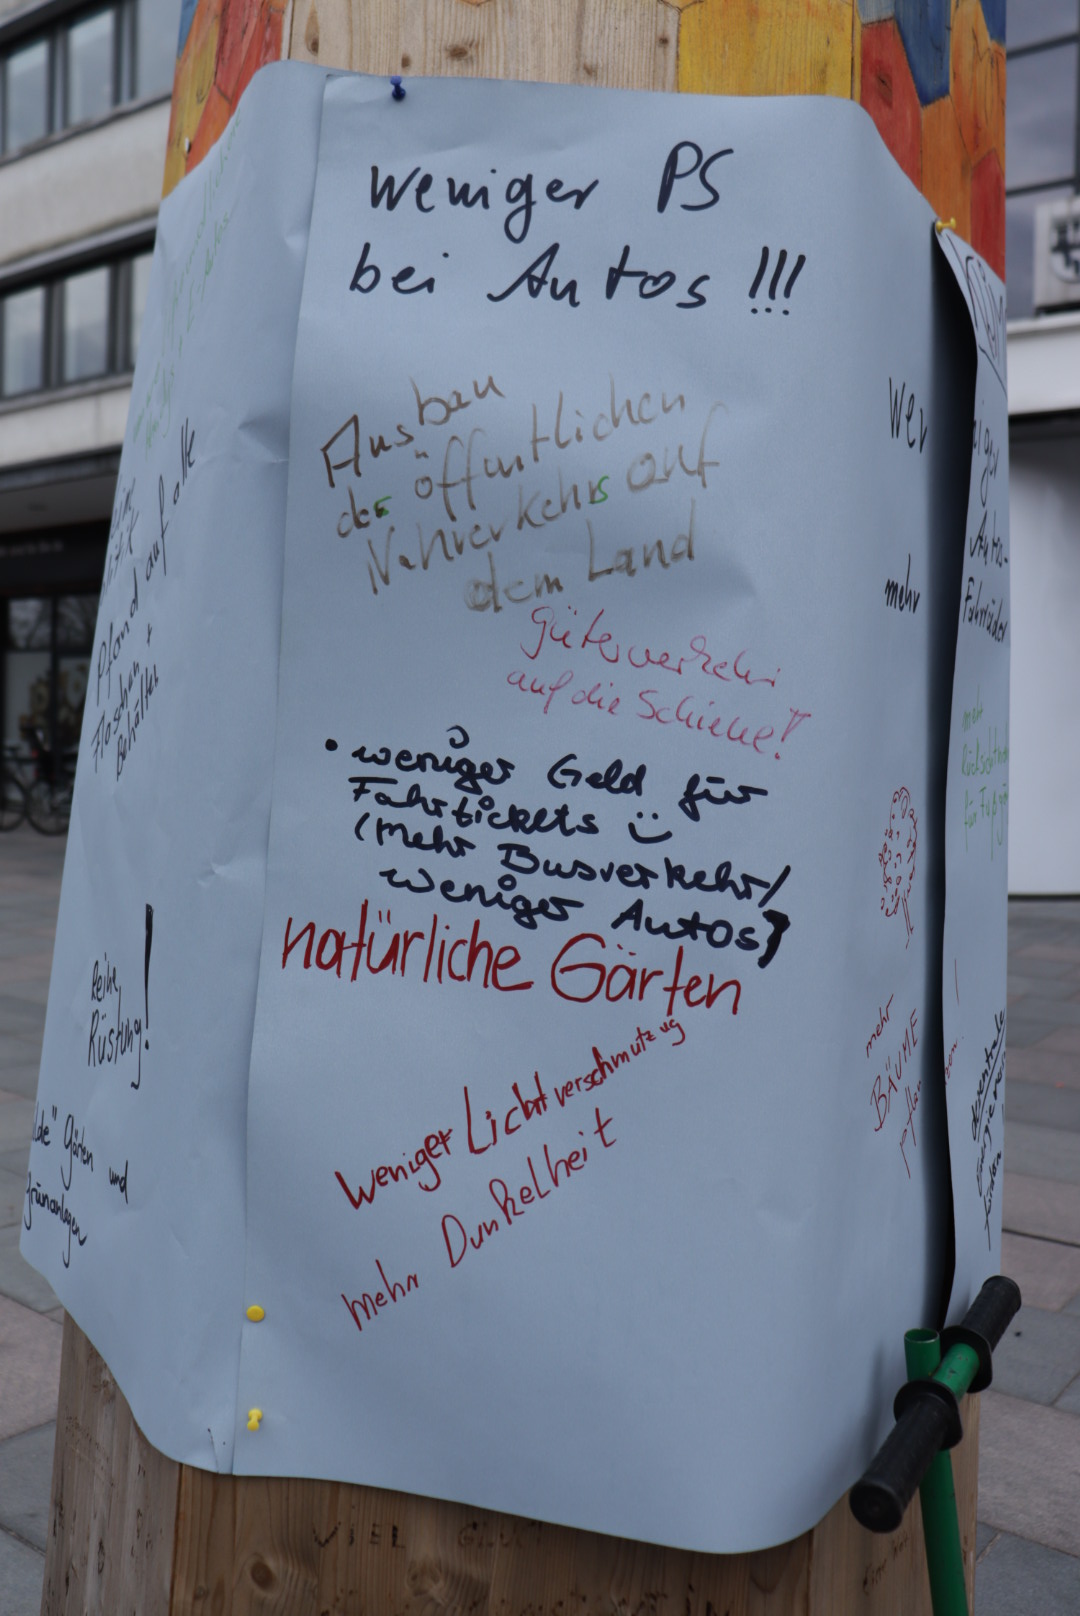 Weniger PS
bei Autos !!!
Ausbau
des öffentlichen
Nahverkehrs auf
dem Land
Güterverkehr
auf die Schiene!
• weniger Geld für
Fahrtickets
(mehr Busverkehr/
weniger Autos)
natürliche Gärten
Weniger Lichtverschmutzug
mehr Dunkelheit
Pfand auf alle
Flaschen +
Behälter
keine
Rüstung!
Gärten und
Grünanlagen
mehr
Autos-
Fahrräder
mehr
für
mehr
BÄUME
dezentrale
fördern
VIEL